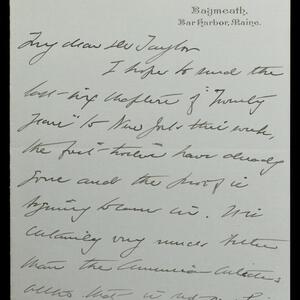 Baymeath,
Bar Harbor, Maine.
My dear Mr Taylor
I hope to send the
last chapters of "Twenty
Years" to New York this week,
the first twelve have already
gone and the proof is
beginning to come in. It is
certainly very much better
than the American